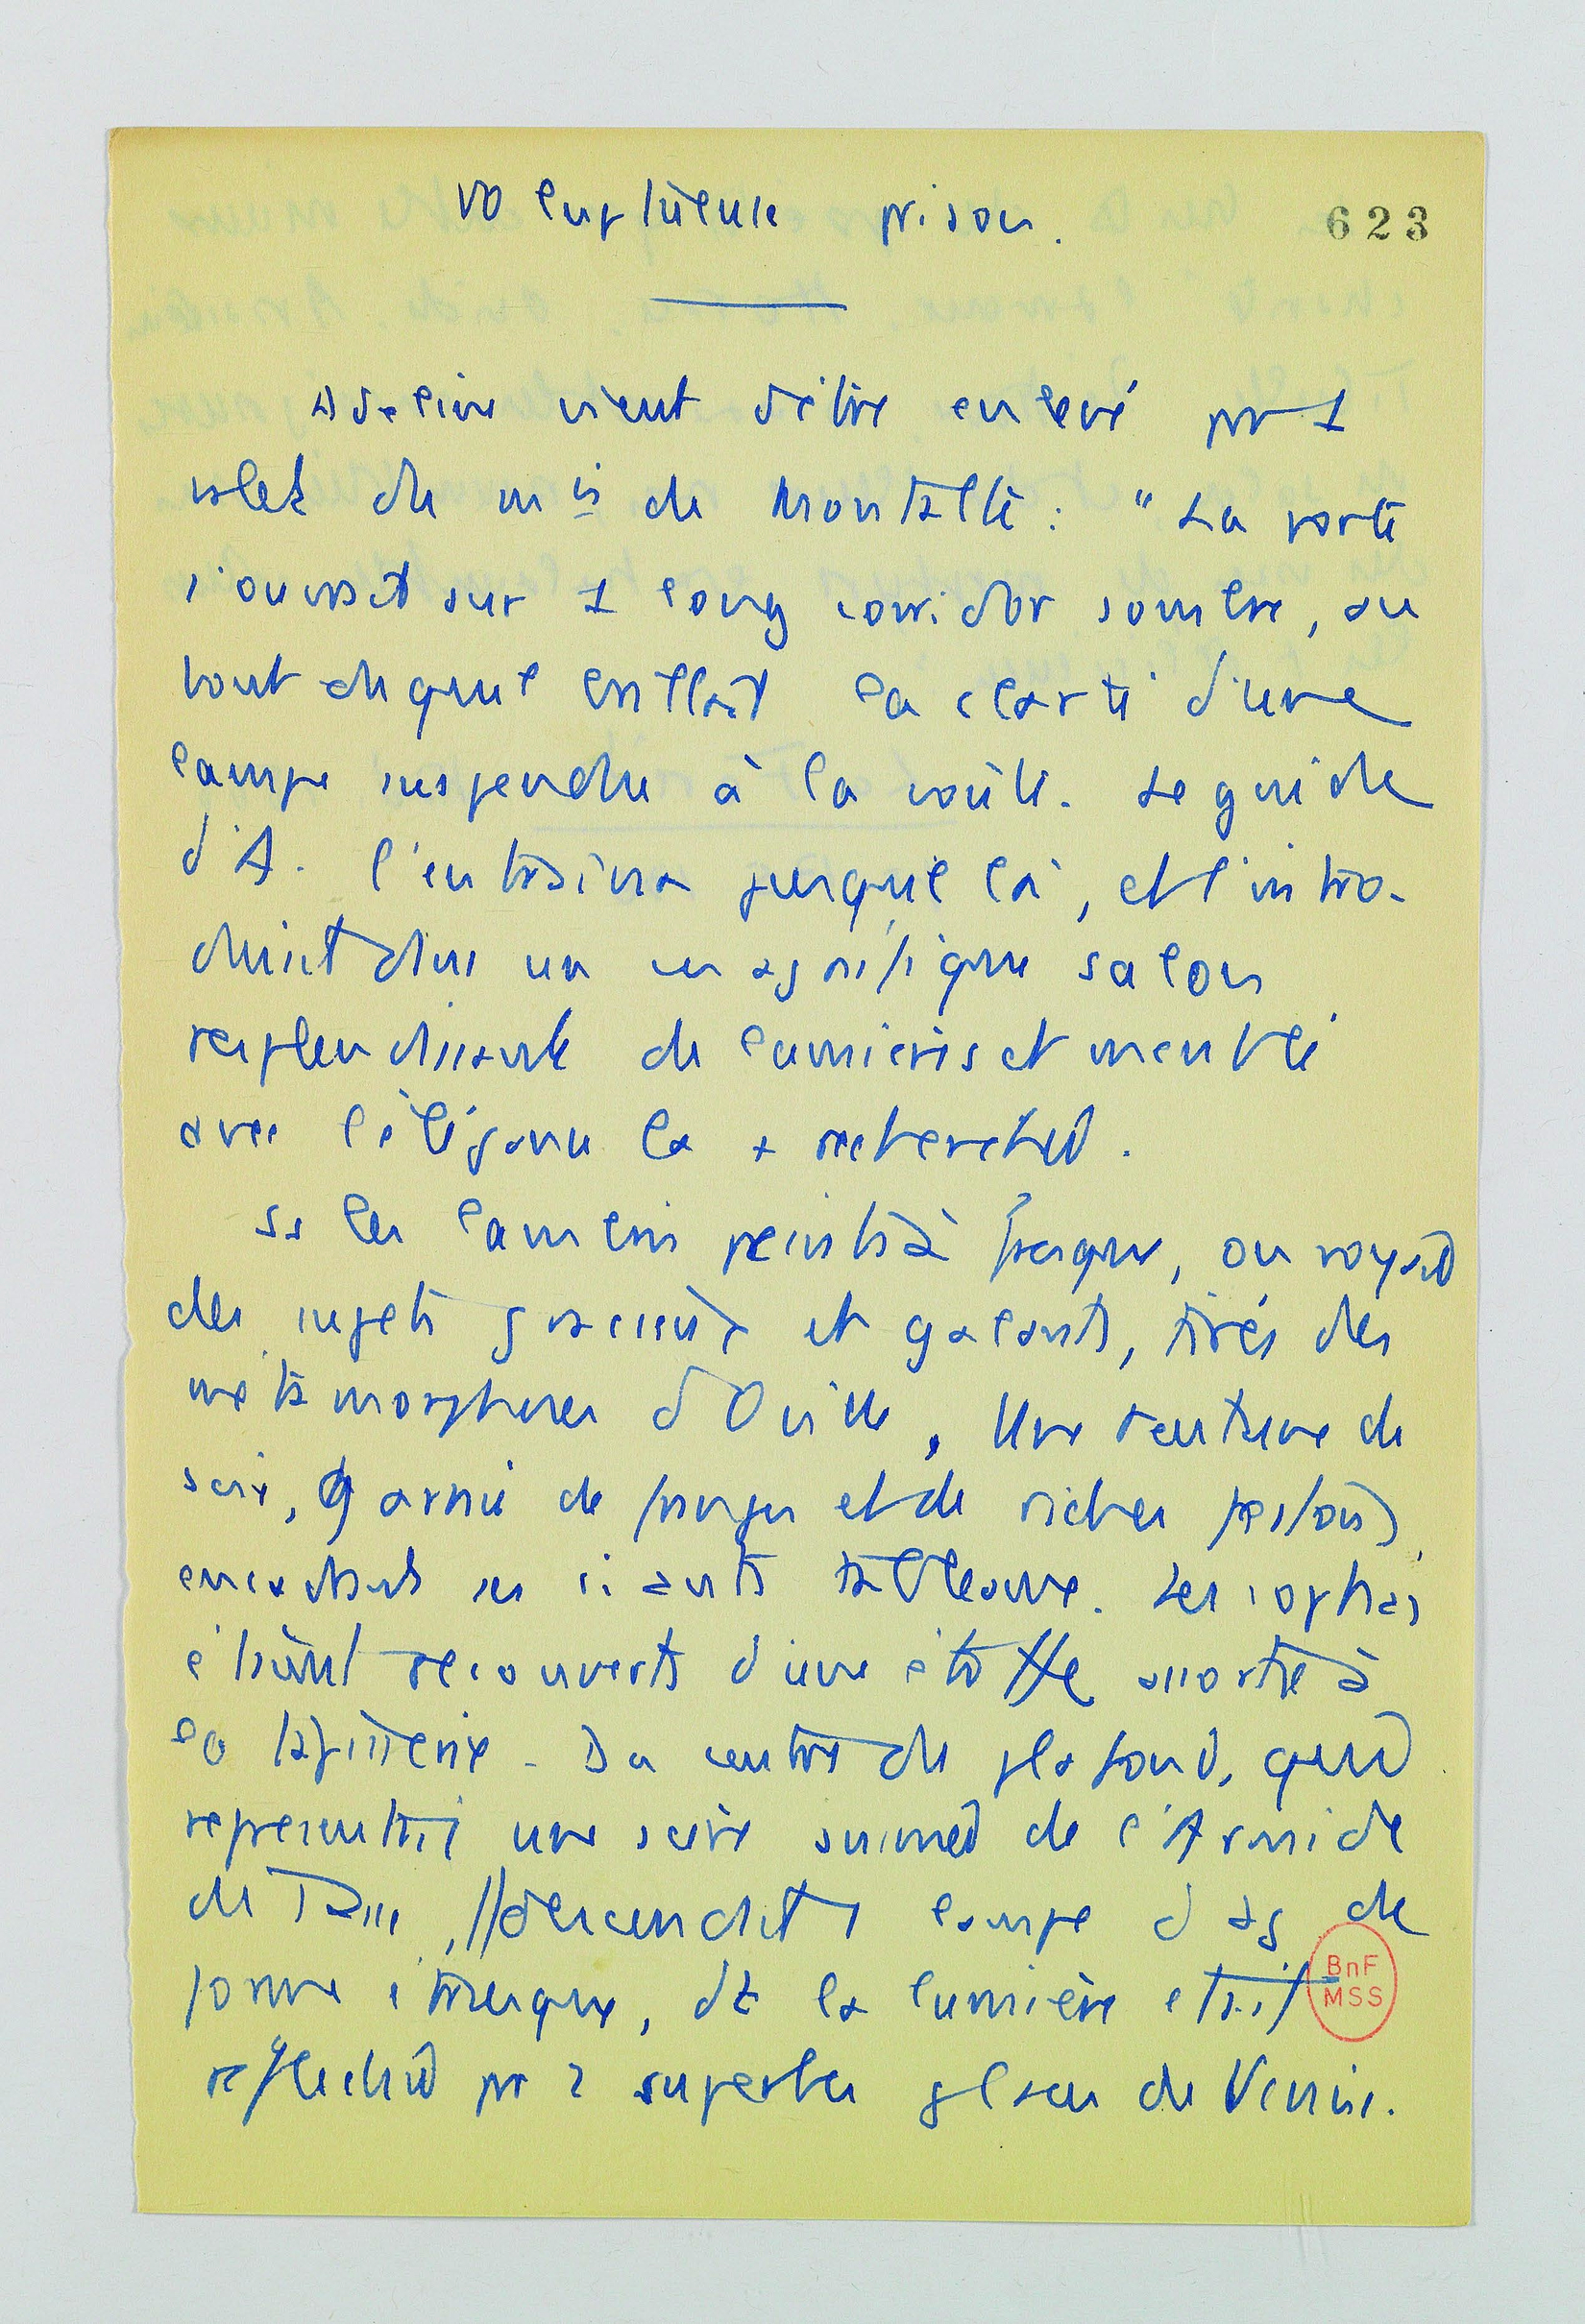 Voluptueuse prison.
623
Adeline vient d'être enlevé pr 1
valet du mis de Montalte : " La porte
s'ouvrait sur 1 long corridor sombre, au
bout duquel brillait la clarté d'une
lampe suspendue à la voûte. Le guide
d'A. l'entraîna jusque là, et l'intro-
duisit dans un magnifique salon
resplendissant de lumières et meublé
avec l'élégance la + recherchée.
Ss les lambris peints à fresque, on voyait
des sujets gracieux et galants, tirés des
métamorphoses d'Ovide, Une tenture de
soie, garnie de franges et de riches festons,
encadrait ces riants tableaux. Les sophas
étaient recouverts d'une étoffe assortie à
la tapisserie. Du centre du plafond, qui
représentait une scène animée de l'Armide
du Tasse, // descendait 1 lampe d'ag de
forme étrusque, dt la lumière était
réfléchie pr 2 superbes glaces de Venise.
BnF
MSS